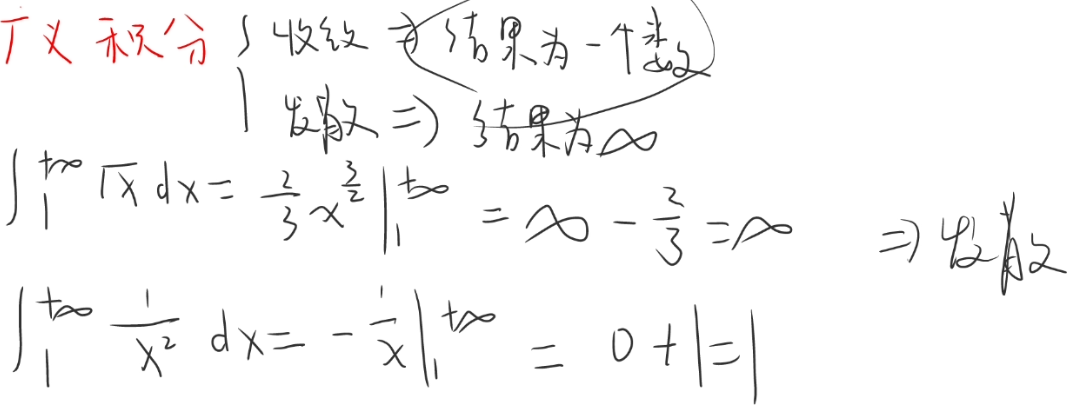 广义积分 { 收敛 ⇒ 结果为一个数
发散 ⇒ 结果为∞
∫₁^{+∞} √x dx = 2/3 x^{3/2} |₁^{+∞} = ∞ - 2/3 = ∞ ⇒ 发散
∫₁^{+∞} 1/x² dx = - 1/x |₁^{+∞} = 0 + 1 = 1